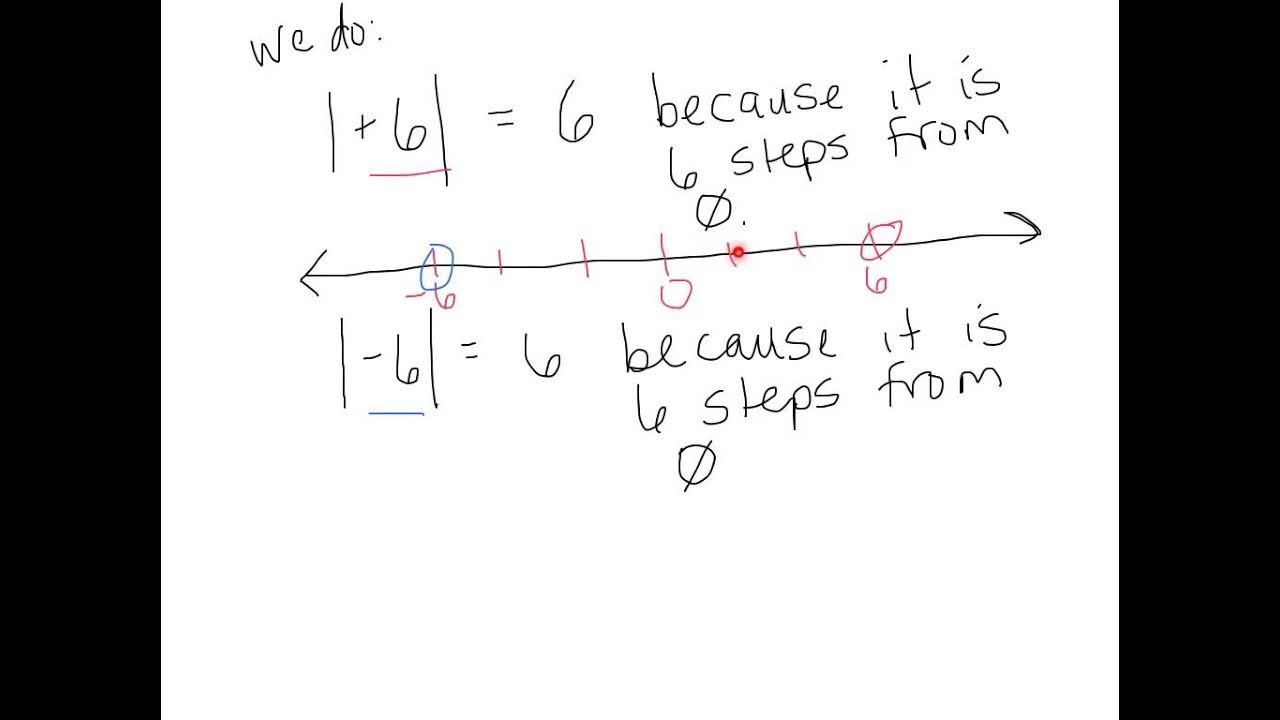 we do:
|+6| = 6 because it is
6 steps from
0.
-6 0 6
|-6| = 6 because it is
6 steps from
0